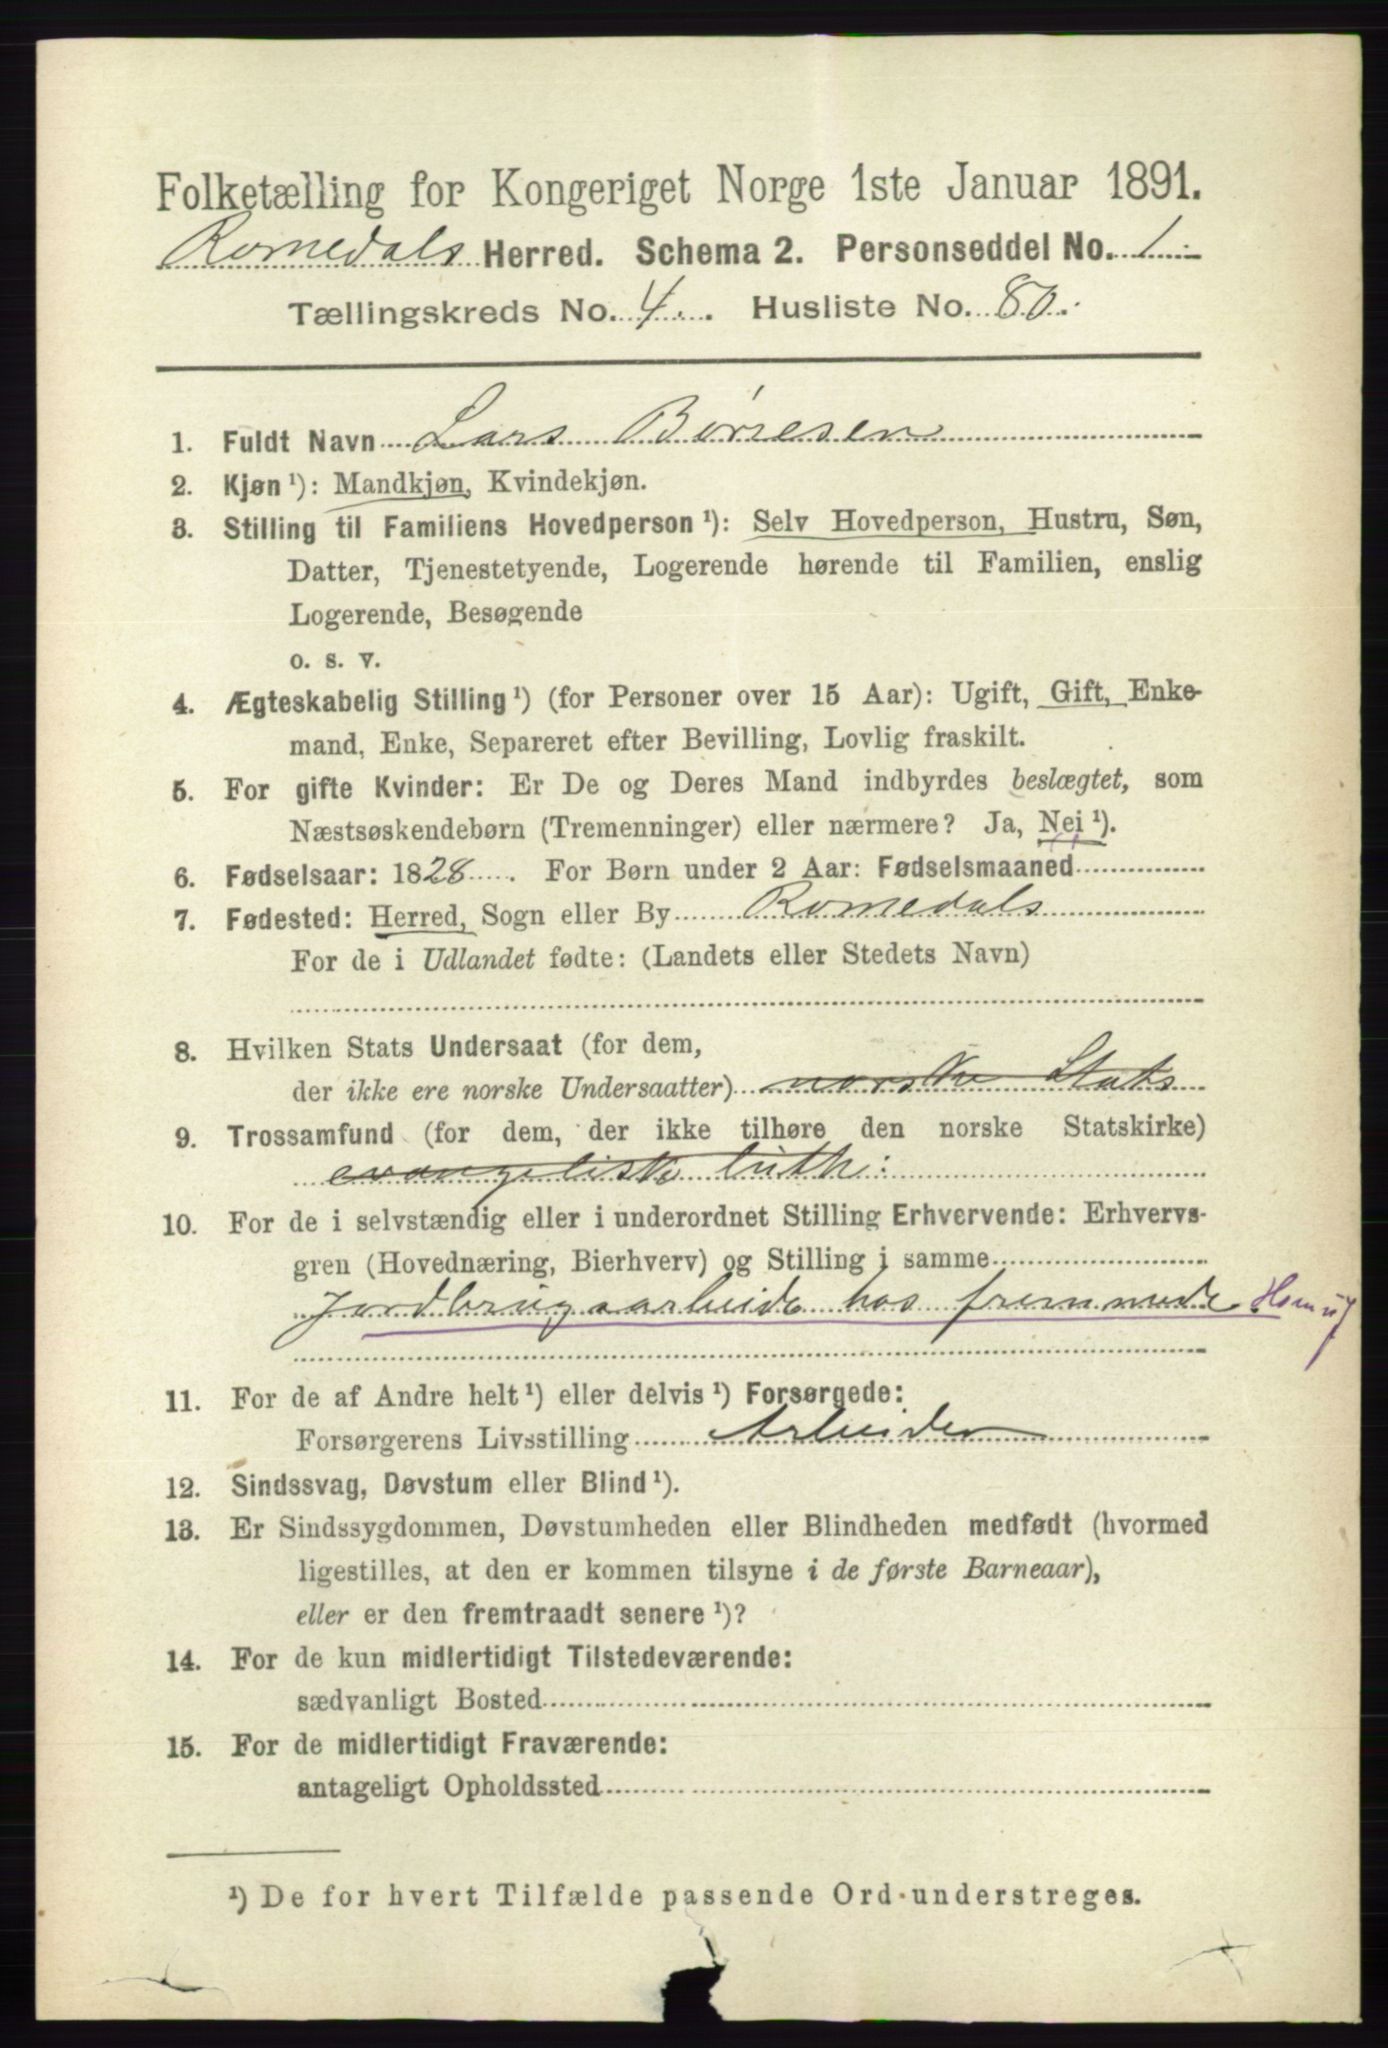 Folketælling for Kongeriget Norge 1ste Januar 1891.
Romedals Herred. Schema 2. Personseddel No. 1
Tællingskreds No. 4. Husliste No. 80.
1. Fuldt Navn Lars Børresen
2. Kjøn ¹): Mandkjøn, Kvindekjøn.
3. Stilling til Familiens Hovedperson ¹): Selv Hovedperson, Hustru, Søn,
Datter, Tjenestetyende, Logerende hørende til Familien, enslig
Logerende, Besøgende
o. s. v.
4. Ægteskabelig Stilling ¹) (for Personer over 15 Aar): Ugift, Gift, Enke-
mand, Enke, Separeret efter Bevilling, Lovlig fraskilt.
5. For gifte Kvinder: Er De og Deres Mand indbyrdes beslægtet, som
Næstsøskendebørn (Tremenninger) eller nærmere? Ja, Nei ¹).
6. Fødselsaar: 1828. For Børn under 2 Aar: Fødselsmaaned
7. Fødested: Herred, Sogn eller By Romedals
For de i Udlandet fødte: (Landets eller Stedets Navn)
8. Hvilken Stats Undersaat (for dem,
der ikke ere norske Undersaatter) norske Stats
9. Trossamfund (for dem, der ikke tilhøre den norske Statskirke)
evangeliske luth:
10. For de i selvstændig eller i underordnet Stilling Erhvervende: Erhvervs-
gren (Hovednæring, Bierhverv) og Stilling i samme
Jordbrugsarbeide hos fremmede
11. For de af Andre helt ¹) eller delvis ¹) Forsørgede:
Forsørgerens Livsstilling Arbeider
12. Sindssvag, Døvstum eller Blind ¹).
13. Er Sindssygdommen, Døvstumheden eller Blindheden medfødt (hvormed
ligestilles, at den er kommen tilsyne i de første Barneaar),
eller er den fremtraadt senere ¹)?
14. For de kun midlertidigt Tilstedeværende:
sædvanligt Bosted
15. For de midlertidigt Fraværende:
antageligt Opholdssted
¹) De for hvert Tilfælde passende Ord understreges.